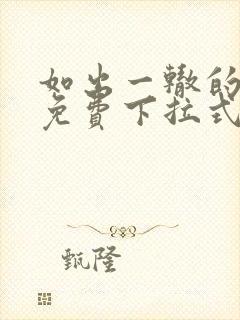 如出一辙的
免费下拉式
甄隆